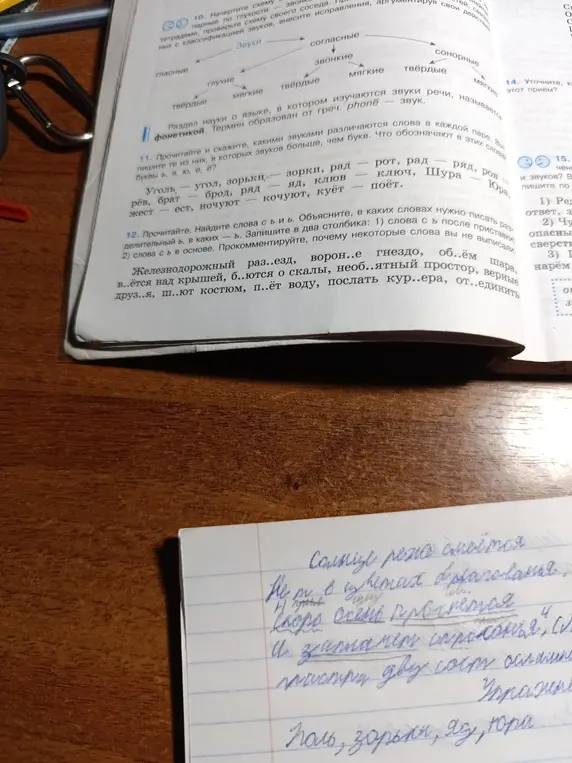 10. Начертите схему
парные по глухости — звонк
тетрадями, проверьте схему своего соседа.
них с классификацией звуков, внесите исправления, аргументируя свои действ
Звуки
согласные
гласные
звонкие
сонорные
глухие
мягкие
твёрдые
твёрдые
мягк
твёрдые
мягкие
Раздел науки о языке, в котором изучаются звуки речи, называется
фонетикой. Термин образован от греч. phonē — звук.
11. Прочитайте и скажите, какими звуками различаются слова в каждой паре. Вы
пишите те из них, в которых звуков больше, чем букв. Что обозначают в этих словах
буквы ь, я, ю, е, ё?
Уголь — угол, зорьки — зорки, рад — рот, рад — ряд, ров —
рёв, брат — брод, ряд — яд, клюв — ключ, Шура — Юра,
жест — ест, ночуют — кочуют, куёт — поёт.
12. Прочитайте. Найдите слова с ъ и ь. Объясните, в каких словах нужно писать раз-
делительный ъ, в каких — ь. Запишите в два столбика: 1) слова с ъ после приставки
2) слова с ь в основе. Прокомментируйте, почему некоторые слова вы не выписали
Железнодорожный раз..езд, ворон..е гнездо, об..ём шара,
в..ётся над крышей, б..ются о скалы, необ..ятный простор, верные
друз..я, ш..ют костюм, п..ёт воду, послать кур..ера, от..единить
14. Уточните, к
этот приём?
15.
и звуков? В
пишите по
1) Ре
ответ, з
2) Чу
опасны
сверст
3)
нарём
Солнце реже смеётся
Нет в цветах
скоро осень проснётся
и заплачет спросонья
Упражн
зорьки, яд, Юра